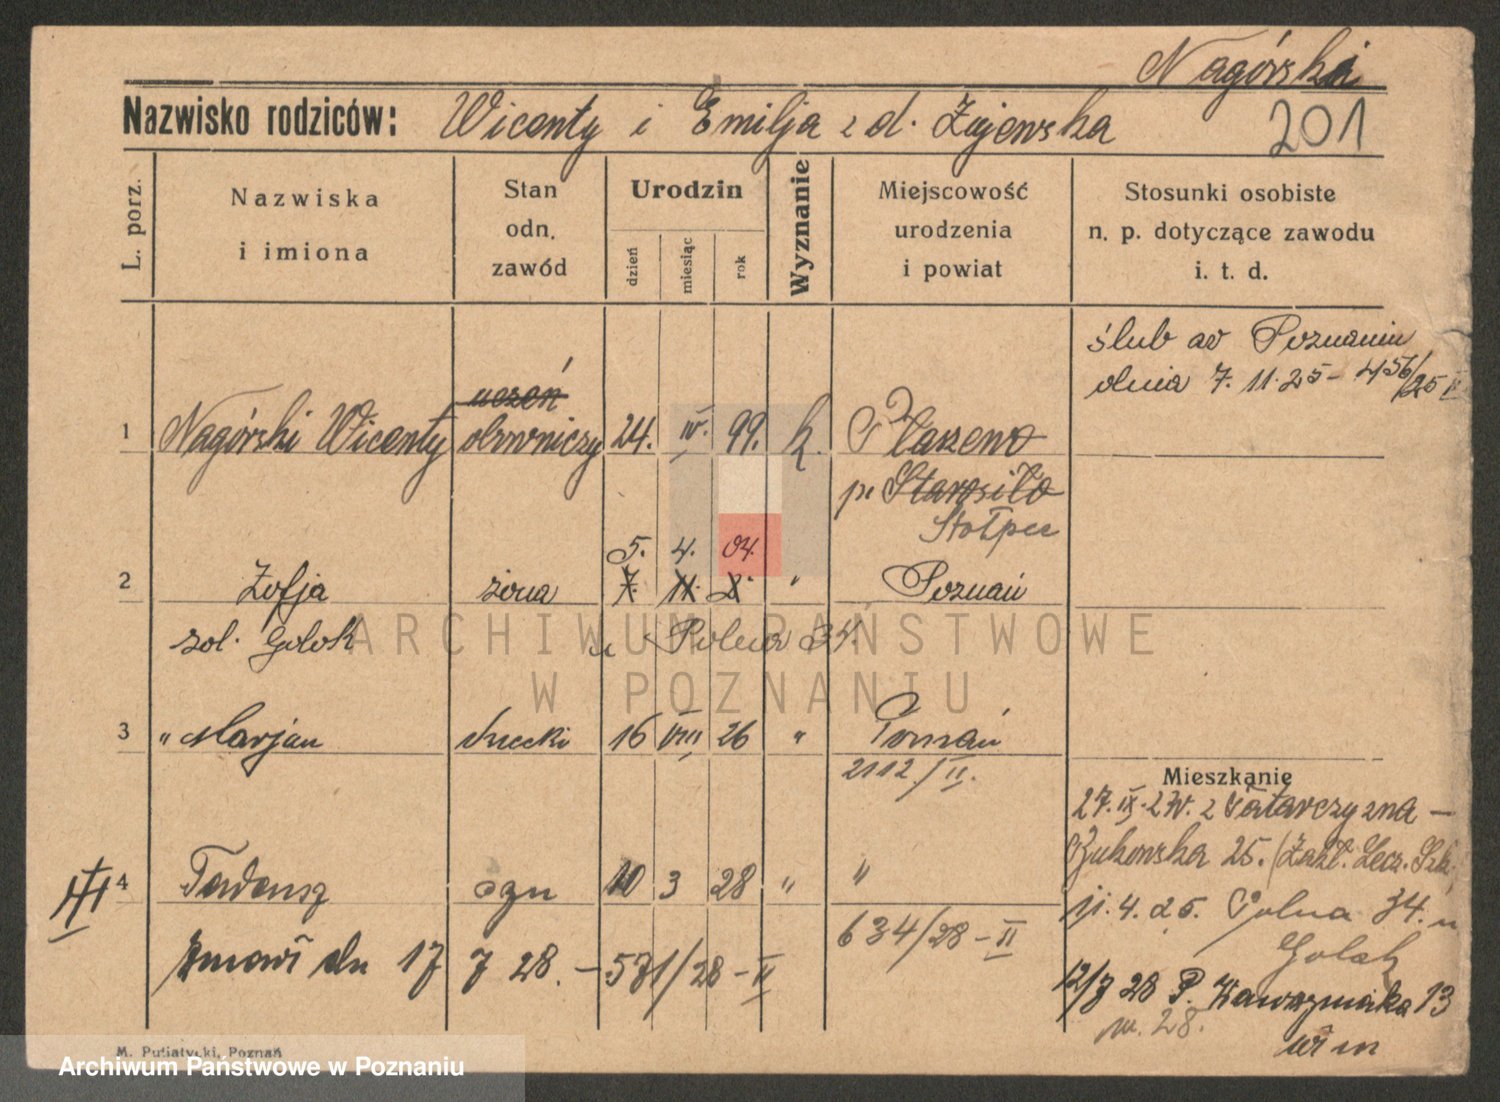 Nagórski
Nazwisko rodziców: Wicenty i Emilja z d. Żujewska
201
L. porz.
Nazwiska
i imiona
Stan
odn.
zawód
Urodzin
dzień
miesiąc
rok
Wyznanie
Miejscowość
urodzenia
i powiat
Stosunki osobiste
n. p. dotyczące zawodu
i. t. d.
ślub w Poznaniu
dnia 7. 11. 25 - 456/25 II
uczeń
1 Nagórski Wicenty 24. IV. 99. k.
Starosiło
Stołpce
5. 4. 04.
2 Zofja żona 7. 11. X. " Poznań
Golak
u Polna 34.
3 " Marjan 16 VIII 26 " Poznań
2112/II.
Mieszkanie
27. IX. z Tatarczyzna -
Bukowska 25. (Zakł. Lecz.
III
4 Tadeusz syn 10 3 28 " "
4. 25. Polna 34. u
Golak
634/28 - II
Zmarł dn 17 7 28. - 571/28 - II
12/7 28 P. 13
m. 28.
M. Putiatycki, Poznań
ARCHIWUM PAŃSTWOWE
W POZNANIU
Archiwum Państwowe w Poznaniu